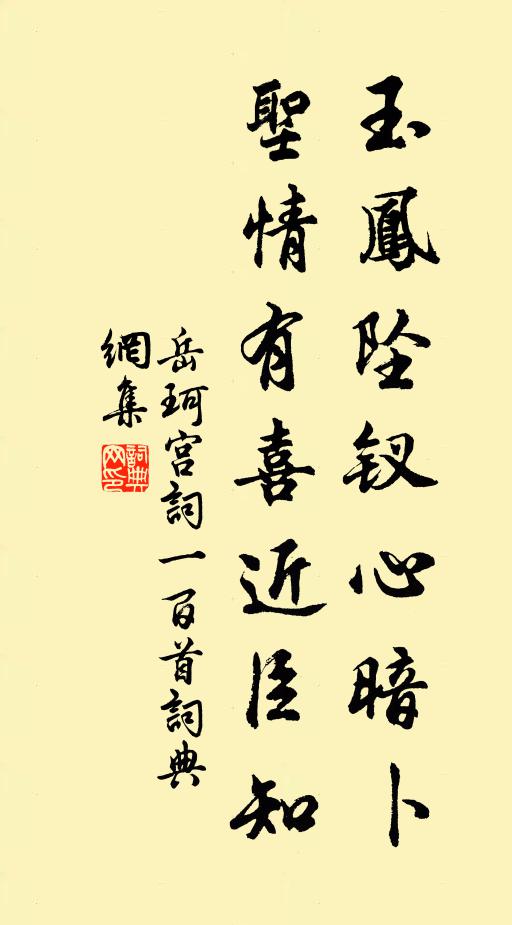 玉鳳墜釵心暗卜
聖情有喜近臣知
岳珂宮詞一百首詞典
網集
詞典網印